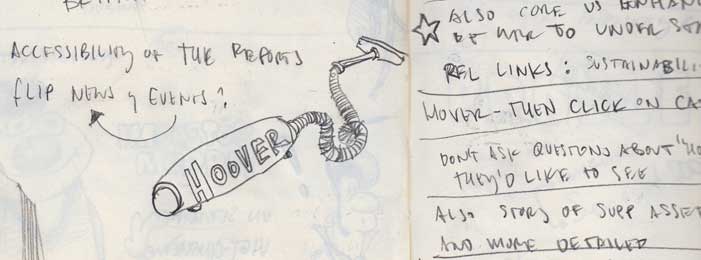 ACCESSIBILITY OF THE REPORTS
FLIP NEWS & EVENTS?
HOOVER
ALSO CORE VS ENHAN
TO UNDERSTA
REL LINKS: SUSTAINABILI
HOVER - THEN CLICK ON CA
DON'T ASK QUESTIONS ABOUT
THEY'D LIKE TO SEE
ALSO STORY OF SUPP ASSET
AND MORE DETAILED